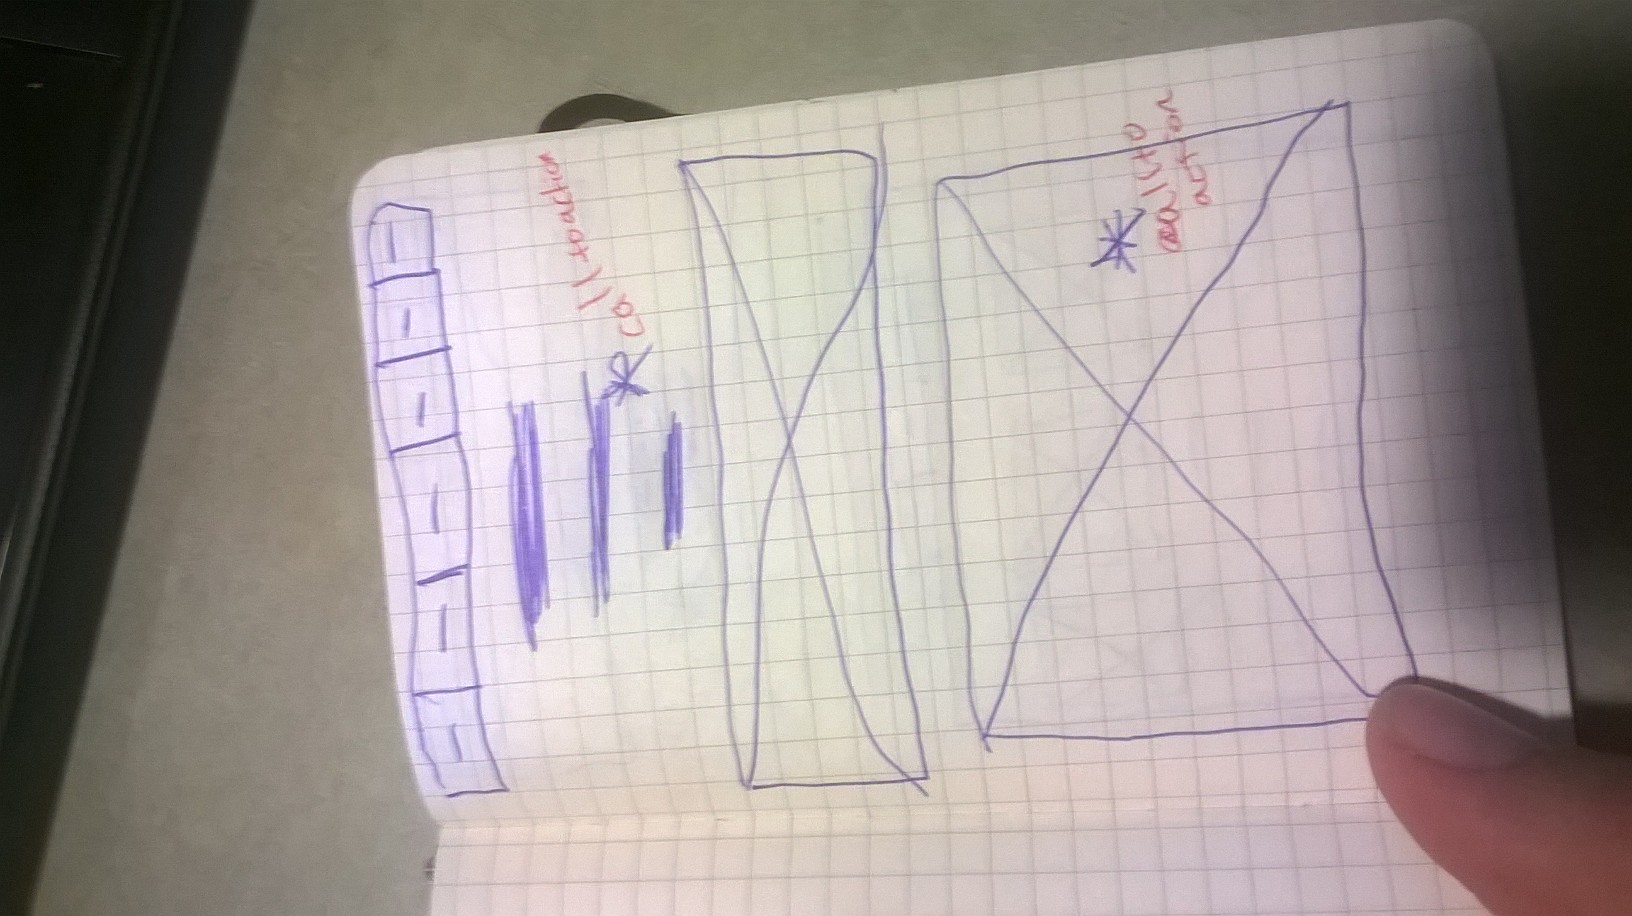 * call to action
* call to
action